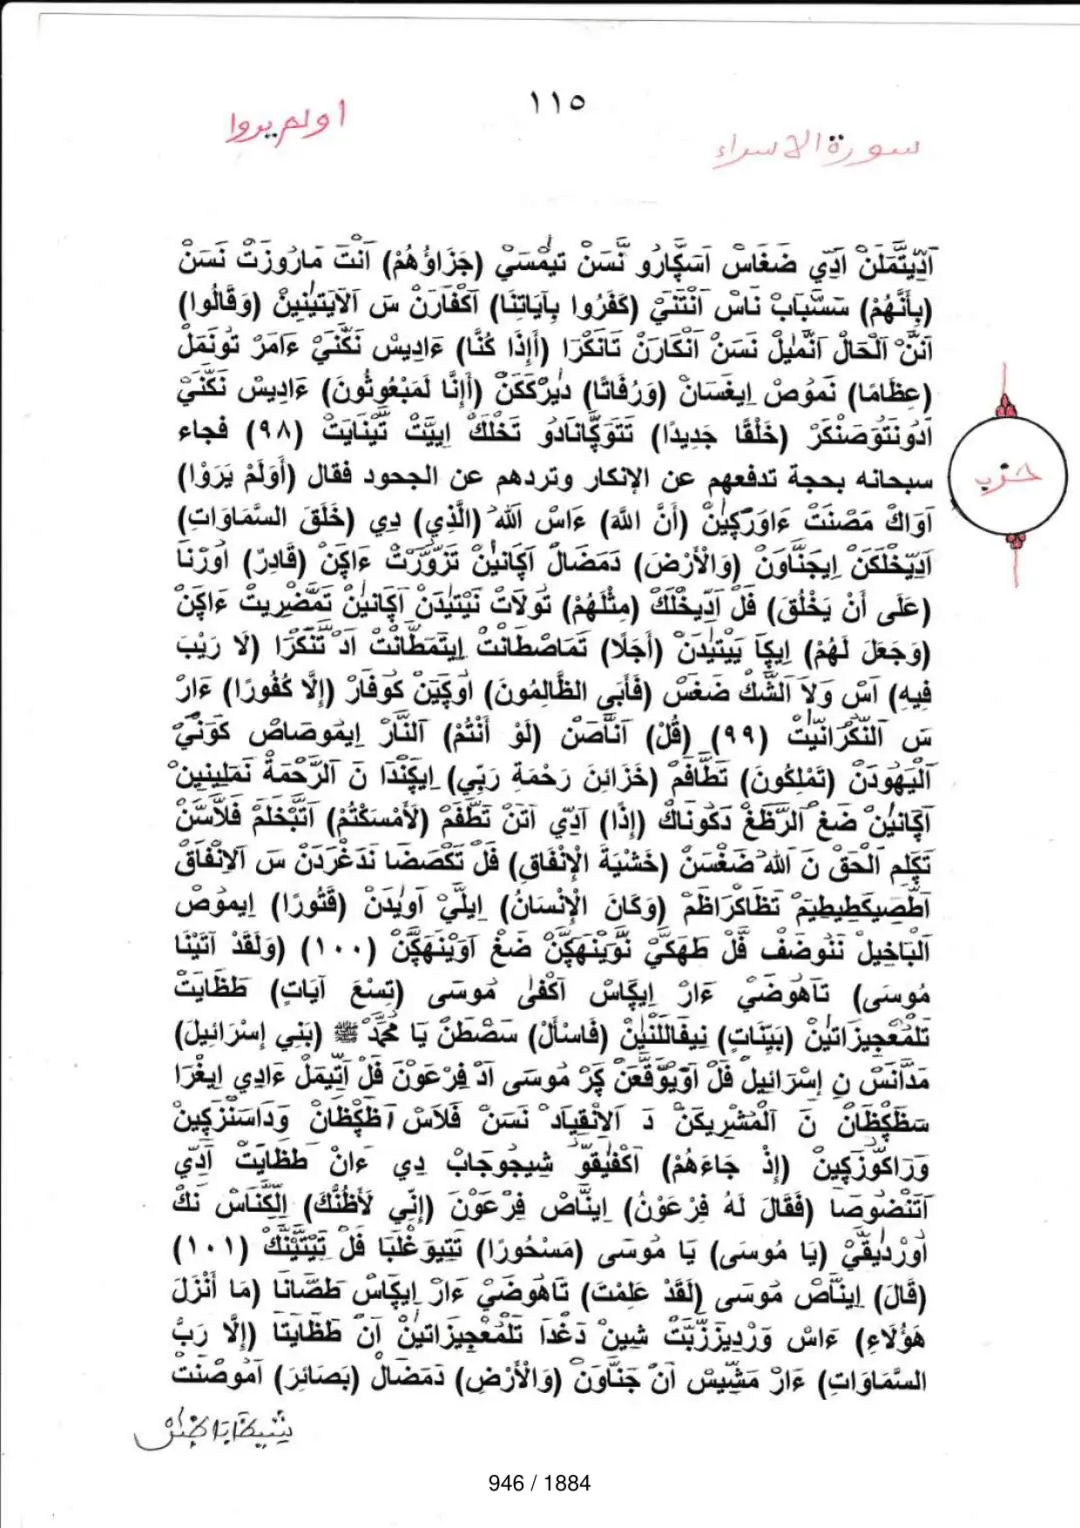 ١١٥
اولم يروا
سورة الاسراء
اَدِّيتَّمَلَنْ اَدِي ضَغَاسْ اَسكَّارُو نَّسَنْ تيمْسَيْ (جَزَاؤُهُمْ) اَنْتَ مَارُوزَتْ نَسَنْ
(بِأَنَّهُمْ) سَسَّبَابْ نَاسْ اَنْتَنَيْ (كَفَرُوا بِآيَاتِنَا) اَكْفَارَنْ سَ اَلَايَتِينِينْ (وَقَالُوا)
اَنَنْ اَلْحَالْ اَنْمِيلْ نَسَنْ اَنْكَارَنْ تَانَكْرَا (أَإِذَا كُنَّا) ءَادِيسْ نَكَّنَيْ ءَامَرْ تُونَمَلْ
(عِظَامًا) نَمُوصْ اِيغَسَانْ (وَرُفَاتًا) دَيرَكَّكَنْ (أَإِنَّا لَمَبْعُوثُونَ) ءَادِيسْ نَكَّنَيْ
اَدُونَتَوَصَنْكَرْ (خَلْقًا جَدِيدًا) نَتَوَكَّانَادُو تَخْلَكْ اِيَيَّتْ تَيْنَايَتْ (٩٨) فجاء
سبحانه بحجة تدفعهم عن الإنكار وتردهم عن الجحود فقال (أَوَلَمْ يَرَوْا)
اَوَاكْ مَصْنَتْ ءَاوَرْكِينْ (أَنَّ اللَّهَ) ءَاسْ اَللهْ (الَّذِي) دِي (خَلَقَ السَّمَاوَاتِ)
اَدِّيَخْلَكَنْ اِيجَنَّاوَنْ (وَالْأَرْضَ) دَمَضَالْ اَكَانِينْ تَزْوَّرْتْ ءَاكِنْ (قَادِرٌ) اُورْنَا
(عَلَى أَنْ يَخْلُقَ) فَلْ اَدِّيخْلَكْ (مِثْلَهُمْ) تُولَاتْ نَيْتِيدَنْ اَكَانِينْ تَمَّضْرِيتْ ءَاكِنْ
(وَجَعَلَ لَهُمْ) اِيكَا يَيْتِيدَنْ (أَجَلًا) تَمَاصْطَانَتْ اِيتَمَطَّانَتْ اَدْ تَّنَكْرَا (لَا رَيْبَ
فِيهِ) اَسْ وَلَا اَلشَّكْ ضَغَسْ (فَأَبَى الظَّالِمُونَ) اُوكَيَنْ كُوفَارْ (إِلَّا كُفُورًا) ءَارْ
سَ اَلنَّكَرَانِيتْ (٩٩) (قُلْ) اَنَّاصَنْ (لَوْ أَنْتُمْ) اَلنَّارْ اِيمُوصَاصْ كَوَنَيْ
اَلْيَهُودَنْ (تَمْلِكُونَ) تَطَّافَمْ (خَزَائِنَ رَحْمَةِ رَبِّي) اِيكَنْدَا نَ اَلرَّحْمَةْ نَمَلِينِينْ
اَكَانِينْ ضَغْ اَلرَّظَغْ دَكُونَاكْ (إِذًا) اَدِّي اَتَنْ تَطَّفَمْ (لَأَمْسَكْتُمْ) اَتَّبْخَلَمْ فَلَّاسَنْ
تَكِلِم اَلْحَقْ نَ اَللهْ ضَغْسَنْ (خَشْيَةَ الْإِنْفَاقِ) فَلْ تَكْصَضَا نَدَغْرَدَنْ سَ اَلِانْفَاقْ
اَطْصِيكَطِيطِيمْ تَظَاكَرَاظَمْ (وَكَانَ الْإِنْسَانُ) اِيلَيْ اَوَيْدَنْ (قَتُورًا) اِيمُوصْ
اَلْبَاخِيلْ نَنُوضَفْ فَلْ طَهَكَيْ نَوَّيْنَهَكِّنْ ضَغْ اَوَيْنَهَكِّنْ (١٠٠) (وَلَقَدْ آتَيْنَا
مُوسَى) تَاَهُوضَيْ ءَارْ اِيكَاسْ اَكْفَى مُوسَى (تِسْعَ آيَاتٍ) طَظَايَتْ
تَلْمُعْجِيزَاتِينْ (بَيِّنَاتٍ) نِيفَاللَّنِينْ (فَاسْأَلْ) سَصْطَنْ يَا مُحَمَّدْ ﷺ (بَنِي إِسْرَائِيلَ)
مَدَّانَسْ نِ إِسْرَائِيلْ فَلْ اَوَيُوقَّعَنْ كَرْ مُوسَى اَدْ فِرْعَوْنْ فَلْ اَتِّيمَلْ ءَادِي اِيغْرَا
سَظَكَظَانْ نَ اَلْمُشْرِيكَنْ دَ اَلِانْقِيَادْ نَسَنْ فَلَاسْ اَظْكَظَانْ وَدَاسَنْزَكِينْ
وَرَاكُوزَكِينْ (إِذْ جَاءَهُمْ) اَكْفَيْقَوْ شِيجُوجَابْ دِي ءَانْ طَظَايَتْ اَدِّي
اَتَنْضُوصَا (فَقَالَ لَهُ فِرْعَوْنُ) اِينَّاصْ فِرْعَوْنْ (إِنِّي لَأَظُنُّكَ) اِلْكَّنَاسْ نَكْ
اُورْدَيقَّيْ (يَا مُوسَى) يَا مُوسَى (مَسْحُورًا) تَتِيوَغْلَبَا فَلْ تَيْتَيَّنَّكْ (١٠١)
(قَالَ) اِينَّاصْ مُوسَى (لَقَدْ عَلِمْتَ) تَاهُوضَيْ ءَارْ اِيكَاسْ طَصَّانَا (مَا أَنْزَلَ
هَؤُلَاءِ) ءَاسْ وَرْدِيزَزَّبَّتْ شِينْ دَغْدَا تَلْمُعْجِيزَاتِينْ اَنْ طَظَايَتَا (إِلَّا رَبُّ
السَّمَاوَاتِ) ءَارْ مَشِّيسْ اَنْ جَنَّاوَنْ (وَالْأَرْضِ) دَمَضَالْ (بَصَائِرَ) اَمُوصْنَتْ
حزب
946 / 1884